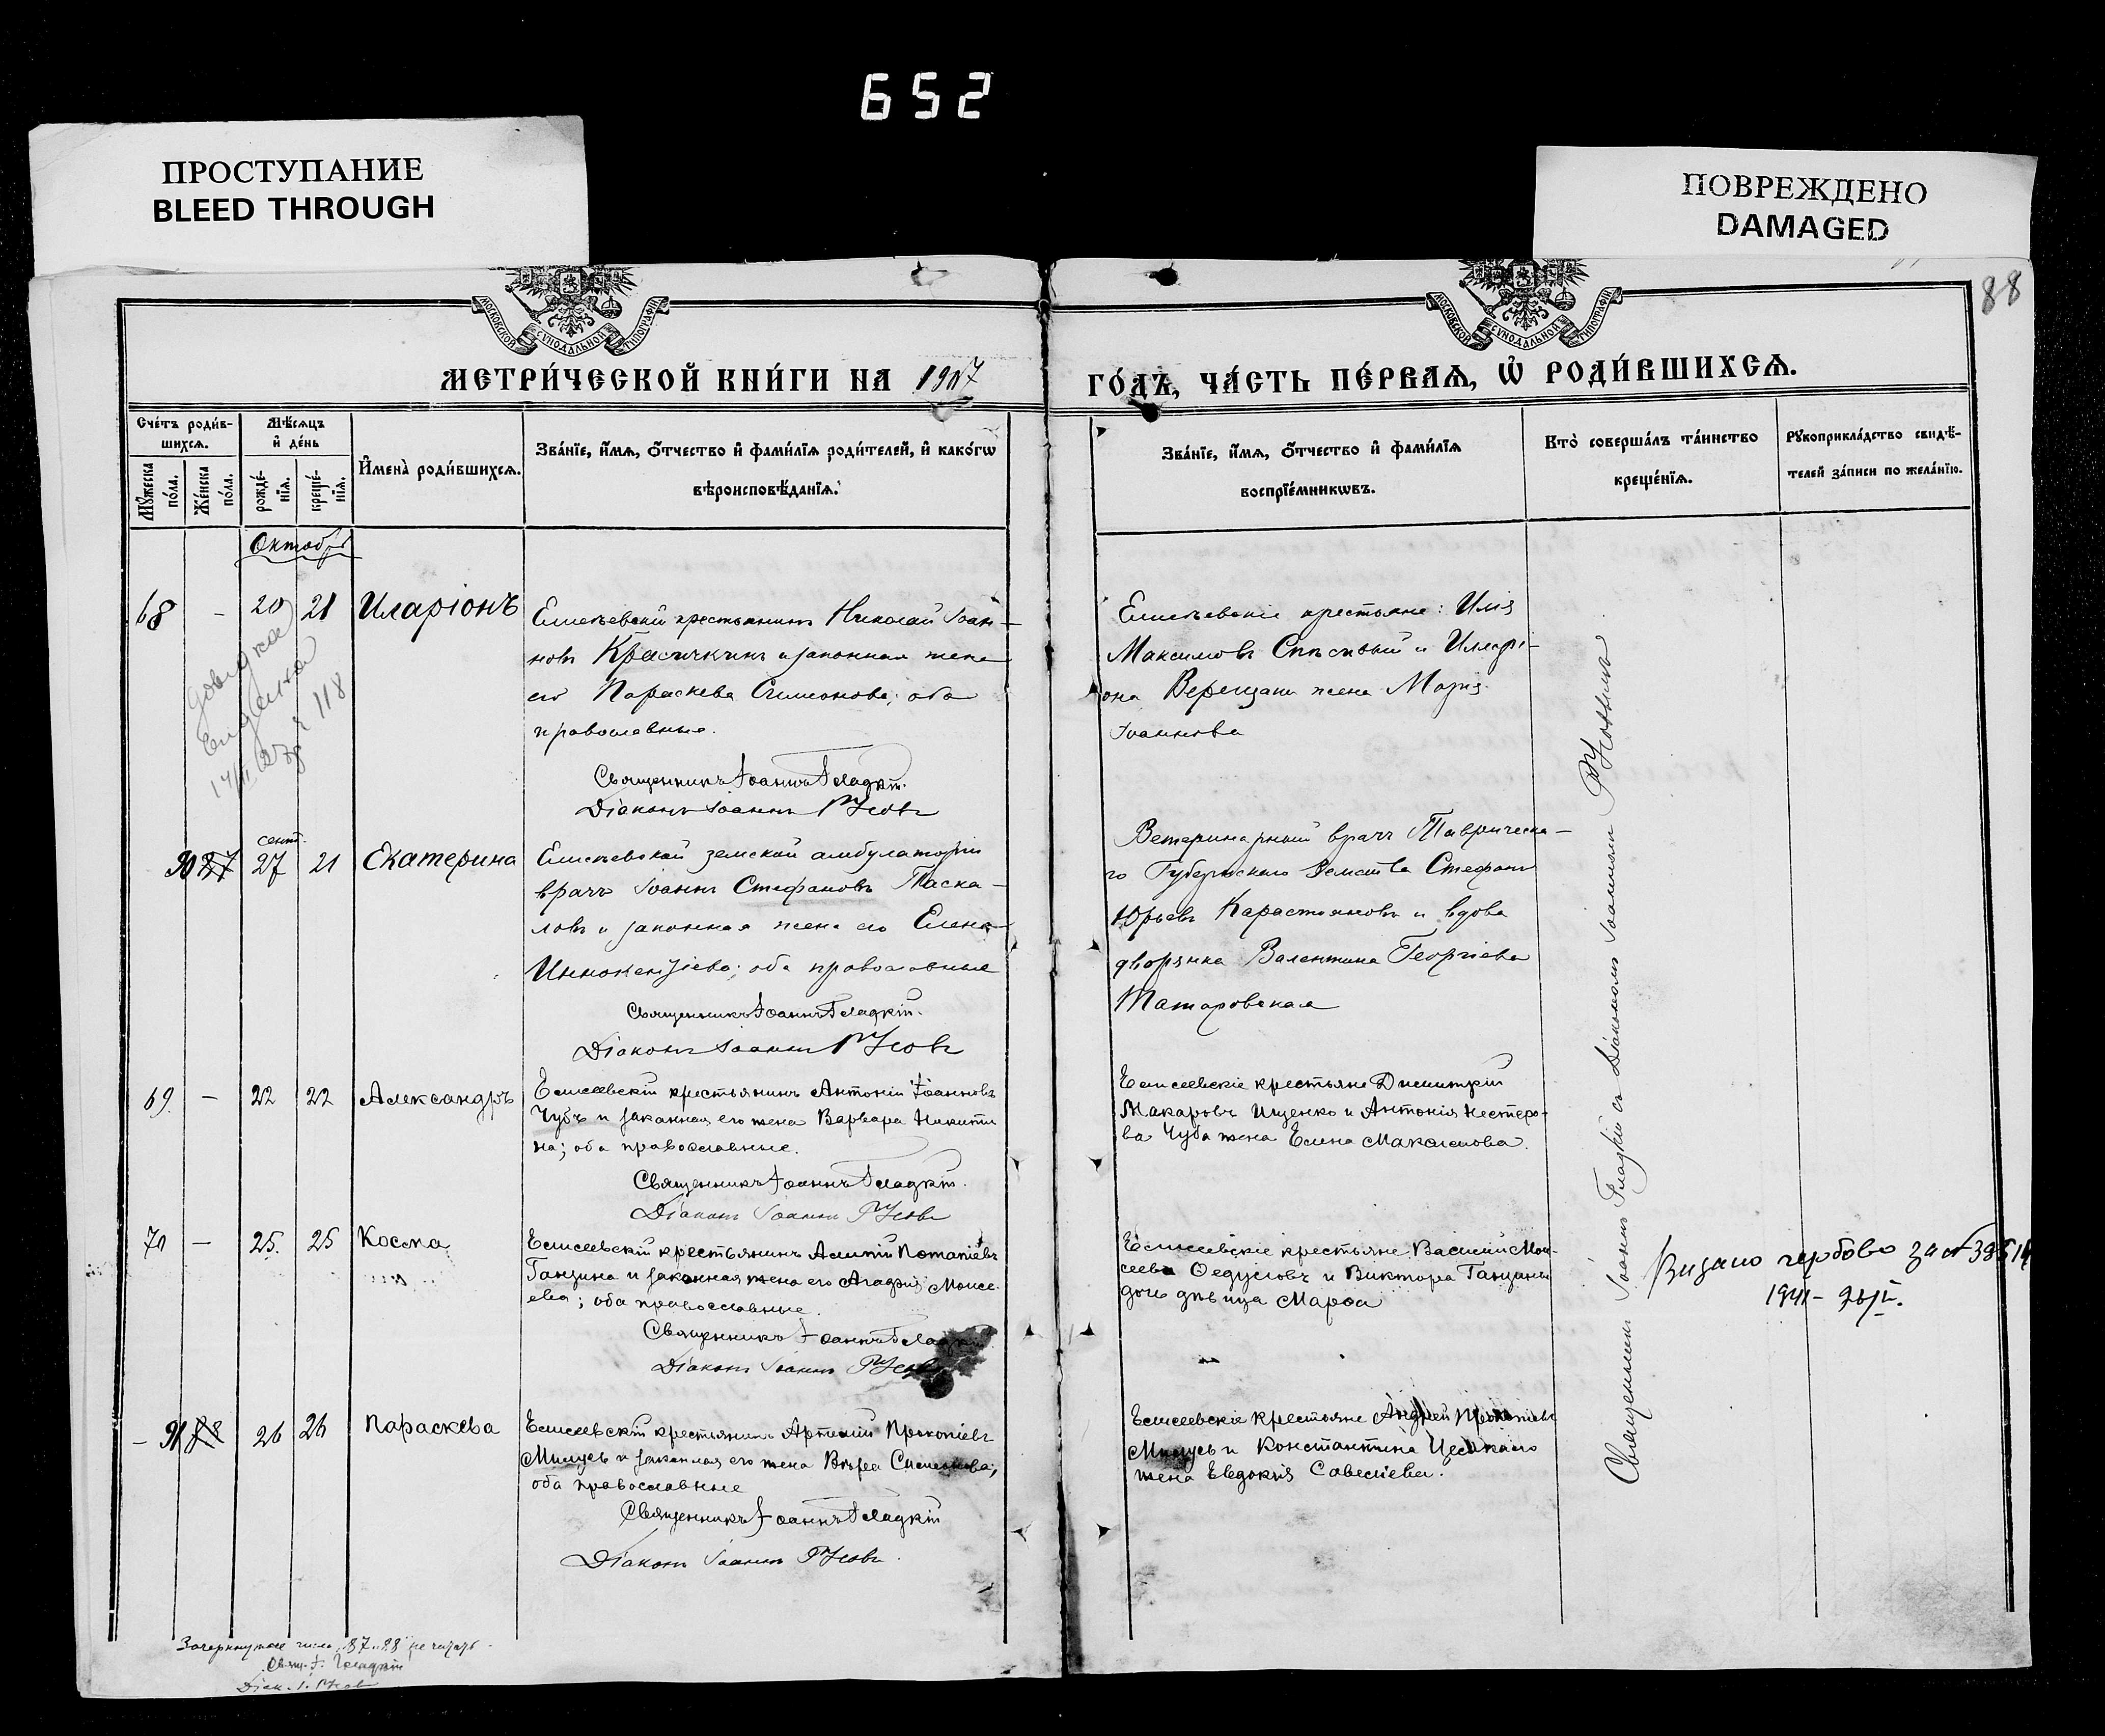 652
ПРОСТУПАНИЕ
BLEED THROUGH
ПОВРЕЖДЕНО
DAMAGED
88
МОСКОВСКОЙ СѴНОДАЛЬНОЙ ТИПОГРАФІИ
МОСКОВСКОЙ СѴНОДАЛЬНОЙ ТИПОГРАФІИ
МЕТРИ́ЧЕСКОЙ КНИ́ГИ НА 1907
ГО́ДЪ, ЧА́СТЬ ПЕ́РВАѦ, Ѡ РОДИ́ВШИХСѦ.
Счетъ роди́в-
шихсѧ.
Мꙋжеска
по́ла.
Же́нска
по́ла.
Мѣ́сѧцъ
и҆ де́нь
рожде́-
нїѧ.
креще́-
нїѧ.
И҆мена̀ роди́вшихсѧ.
Зва́нїе, и҆́мѧ, ѻ҆́тчество и҆ фами́лїѧ роди́телей, и҆ како́гѡ
вѣроисповѣ́данїѧ.
Зва́нїе, и҆́мѧ, ѻ҆́тчество и҆ фами́лїѧ
воспрїе́мникѡвъ.
Кто̀ соверша́лъ та́инство
креще́нїѧ.
Рꙋкоприкла́дство свидѣ́-
телей за́писи по жела́нїю.
Октябрь
68 - 20 21 Иларіонъ
Елисѣевскій крестьянинъ Николай Іоан-
новъ Красичкинъ и законная жена
его Параскева Симонова; оба
православные.
Священникъ Іоаннъ Гладкій.
Діаконъ Іоаннъ Русовъ
Елисѣевскіе крестьяне: Илія
Максимовъ и Иларі-
она Верещаги жена Марія
Іоаннова
довидка
118
90 87 сент. 27 21 Екатерина
Елисѣевской земской амбулаторіи
врачъ Іоаннъ Стефановъ Паска-
ловъ и законная жена его Елена
Иннокентіева; оба православные
Священникъ Іоаннъ Гладкій.
Діаконъ Іоаннъ Русовъ
Ветеринарный врачъ Таврическа-
го Губернскаго Земства Стефанъ
Юрьевъ Карастояновъ и вдова
дворянка Валентина Георгіева
Татаровская
69. - 22 22 Александръ
Елисеевскій крестьянинъ Антоній Іоанновъ
Чубъ и законная его жена Варвара Никити
на; оба православные.
Священникъ Іоаннъ Гладкій.
Діаконъ Іоаннъ Русовъ
Елисеевскіе крестьяне Димитрій
Макаровъ Ищенко и Антонія Нестеро-
ва Чуба жена Елена Максимова.
70 - 25. 25 Косма
Елисеевскій крестьянинъ Потапіевъ
Ганзина и законная жена его Агафія Моисе-
ева; оба православные.
Священникъ Іоаннъ Гладкій
Діаконъ Іоаннъ Русовъ
Елисеевскіе крестьяне Василій Мои-
сеевъ и Виктора Ганзина
дочь дѣвица Марѳа
- 91 88 26 26 Параскева
Елисеевскій крестьянинъ Артемій Прокопіевъ
и законная его жена Вѣра Симеонова;
оба православные
Священникъ Іоаннъ Гладкій
Діаконъ Іоаннъ Русовъ.
Елисеевскіе крестьяне Андрей Прокопіевъ
и Константина
жена Евдокія Савеліева.
Священникъ Іоаннъ Гладкій съ Діакономъ Іоанномъ Русовымъ.
Видано за №
Зачеркнутое число „87 и 88" не читать.
Свящ. І. Гладкій
Діак. І. Русовъ